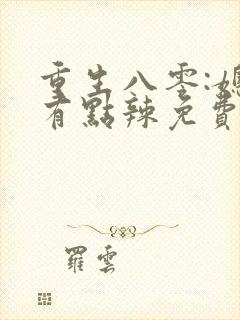 重生八零:
有點辣免費
羅雲